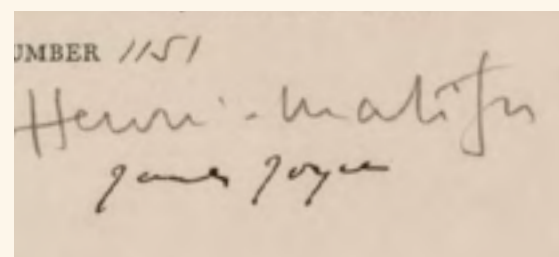 UMBER 1151
Henri-Matisse
James Joyce